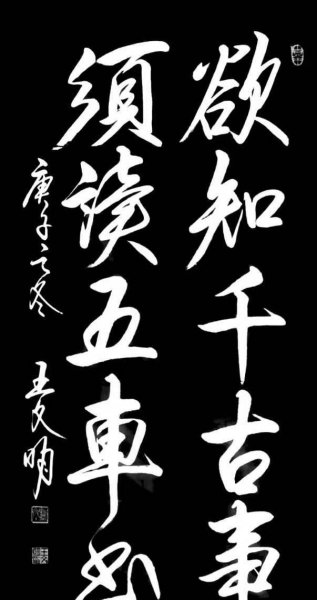 欲知千古事
須讀五車书
庚子之冬
王